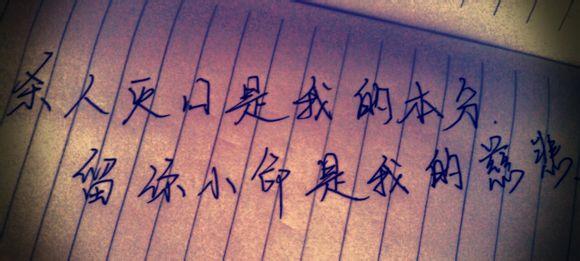 杀人灭口是我的本分.
留你小命是我的慈悲